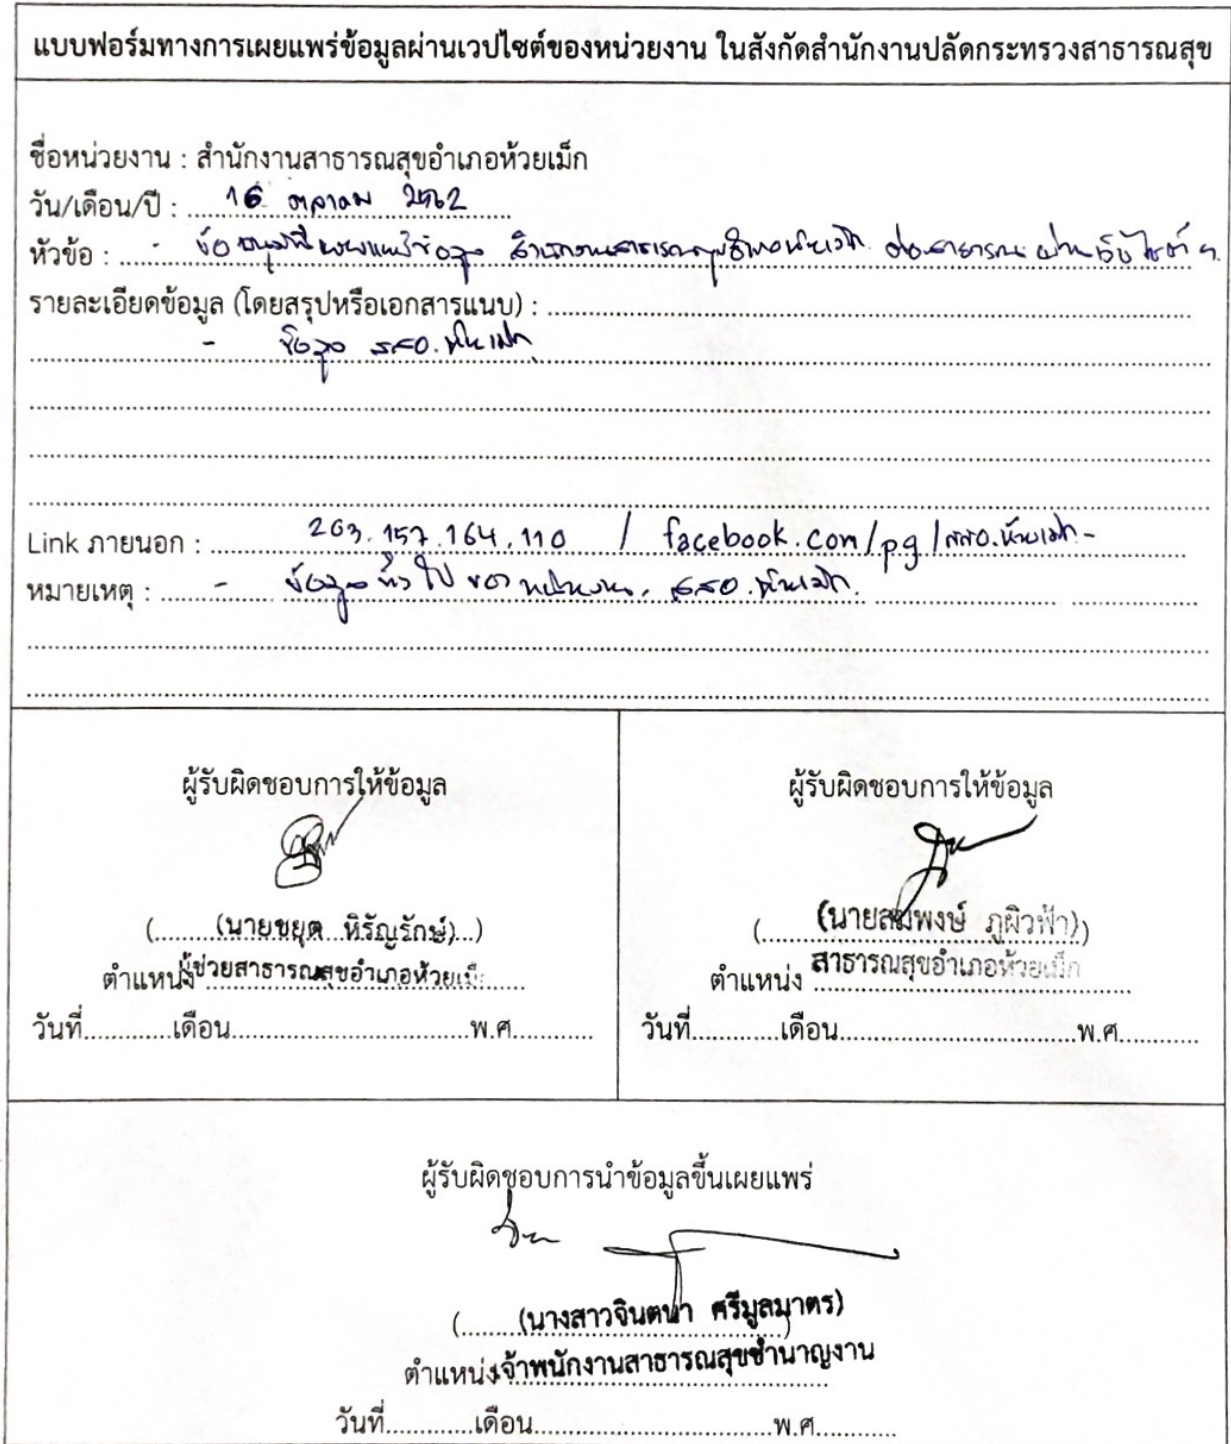 แบบฟอร์มทางการเผยแพร่ข้อมูลผ่านเวปไซต์ของหน่วยงาน ในสังกัดสำนักงานปลัดกระทรวงสาธารณสุข
ชื่อหน่วยงาน : สำนักงานสาธารณสุขอำเภอห้วยเม็ก
วัน/เดือน/ปี : 16 ตุลาคม 2562
หัวข้อ : - ขออนุมัติเผยแพร่ข้อมูล สำนักงานสาธารณสุขอำเภอห้วยเม็ก ต่อสาธารณะ ผ่านเว็บไซต์ ฯ
รายละเอียดข้อมูล (โดยสรุปหรือเอกสารแนบ) :
- ข้อมูล สสอ.ห้วยเม็ก
Link ภายนอก : 203.157.164.110 / facebook.com/pg/สสอ.ห้วยเม็ก-
หมายเหตุ : - ข้อมูลทั่วไป ของหน่วยงาน. สสอ.ห้วยเม็ก.
ผู้รับผิดชอบการให้ข้อมูล
(นายชยุต หิรัญรักษ์)
ตำแหน่ง ผู้ช่วยสาธารณสุขอำเภอห้วยเม็ก
วันที่............เดือน................................พ.ศ...........
ผู้รับผิดชอบการให้ข้อมูล
(นายสมพงษ์ ภูผิวฟ้า)
ตำแหน่ง สาธารณสุขอำเภอห้วยเม็ก
วันที่............เดือน................................พ.ศ...........
ผู้รับผิดชอบการนำข้อมูลขึ้นเผยแพร่
(นางสาวจินตนา ศรีมูลมาตร)
ตำแหน่ง เจ้าพนักงานสาธารณสุขชำนาญงาน
วันที่............เดือน................................พ.ศ...........